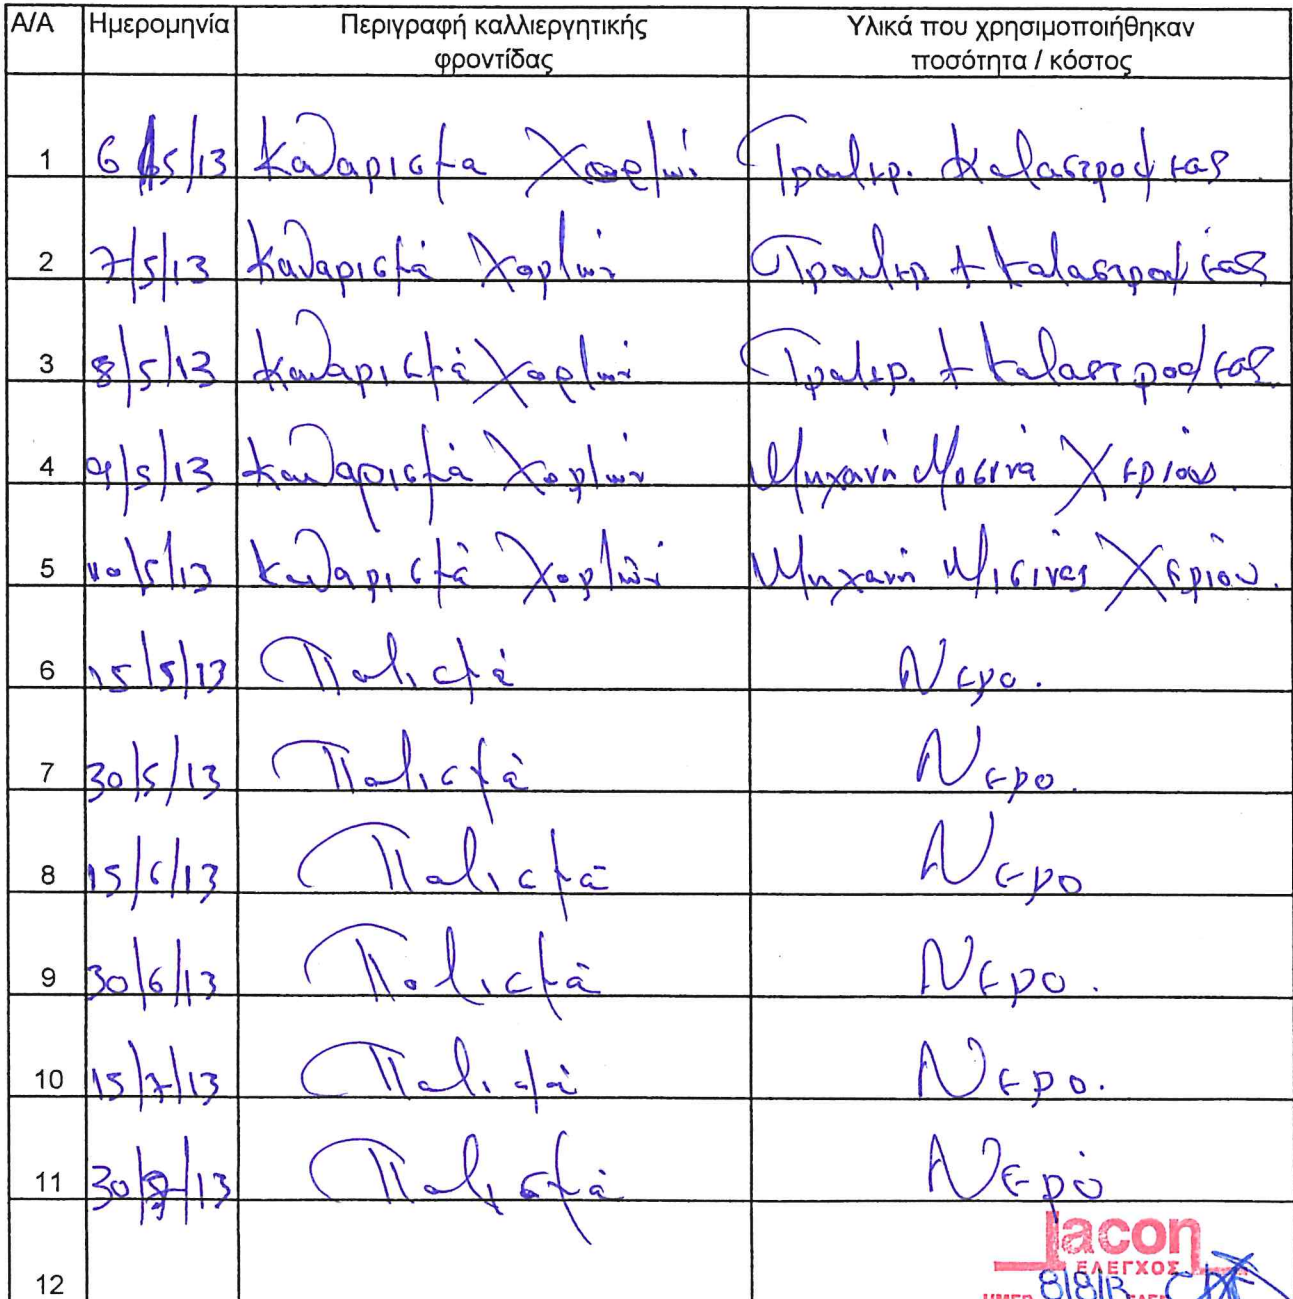 Α/Α Ημερομηνία Περιγραφή καλλιεργητικής φροντίδας Υλικά που χρησιμοποιήθηκαν ποσότητα / κόστος
1 6/5/13 Καθαρισμα Χορτών Τρακτερ. Καταστροφεας
2 7/5/13 Καθαρισμά Χορτών Τρακτερ + Καταστροφέας
3 8/5/13 Καθαρισμά Χορτών Τρακτερ. + Καταστροφεας
4 9/5/13 Καθαρισμά Χορτών Μηχανή Χεριού
5 10/5/13 Καθαρισμά Χορτών Μηχανή Μισινέs Χεριού.
6 15/5/13 Ποτισμά Νερο.
7 30/5/13 Ποτισμά Νερο.
8 15/6/13 Ποτισμά Νερο
9 30/6/13 Ποτισμά Νερο.
10 15/7/13 Ποτισμά Νερο.
11 30/7/13 Ποτισμά Νερό
lacon
ΕΛΕΓΧΟΣ
12 ΗΜΕΡ 8/8/13